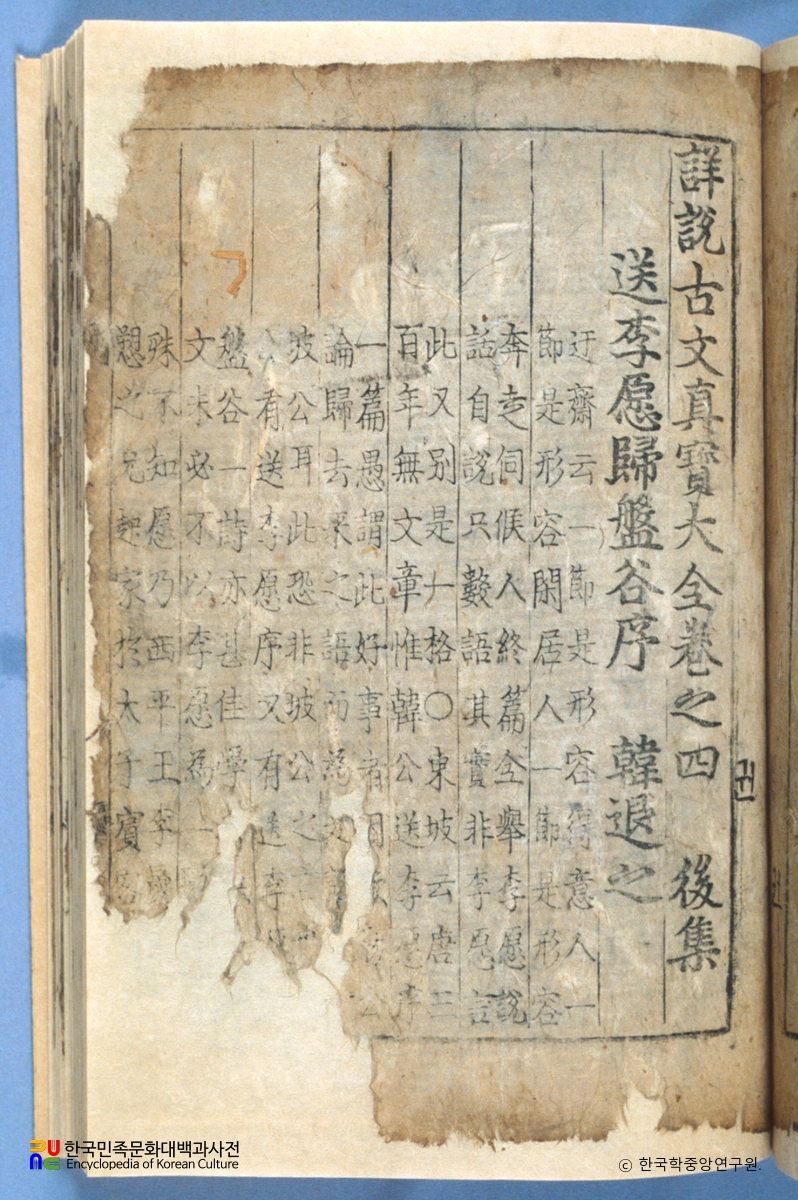 詳說古文真寶大全卷之四 後集
送李愿歸盤谷序 韓退之
迂齋云一節是形容得意人一
節是形容閑居人一節是形容
奔走伺候人終篇全舉李愿說
話自說只數語其實非李愿言
此又別是一格○東坡云唐三
百年無文章惟韓公送李愿序
一篇愚謂此好事者因
論歸去來之語而為
坡公耳此恐非坡公之言
公有送李愿序又有送李
盤谷一詩亦甚佳學
文未必不以李愿為一
殊不知愿乃西平王李
愬之兄起家於太子賓客
한국민족문화대백과사전
Encyclopedia of Korean Culture
ⓒ 한국학중앙연구원.